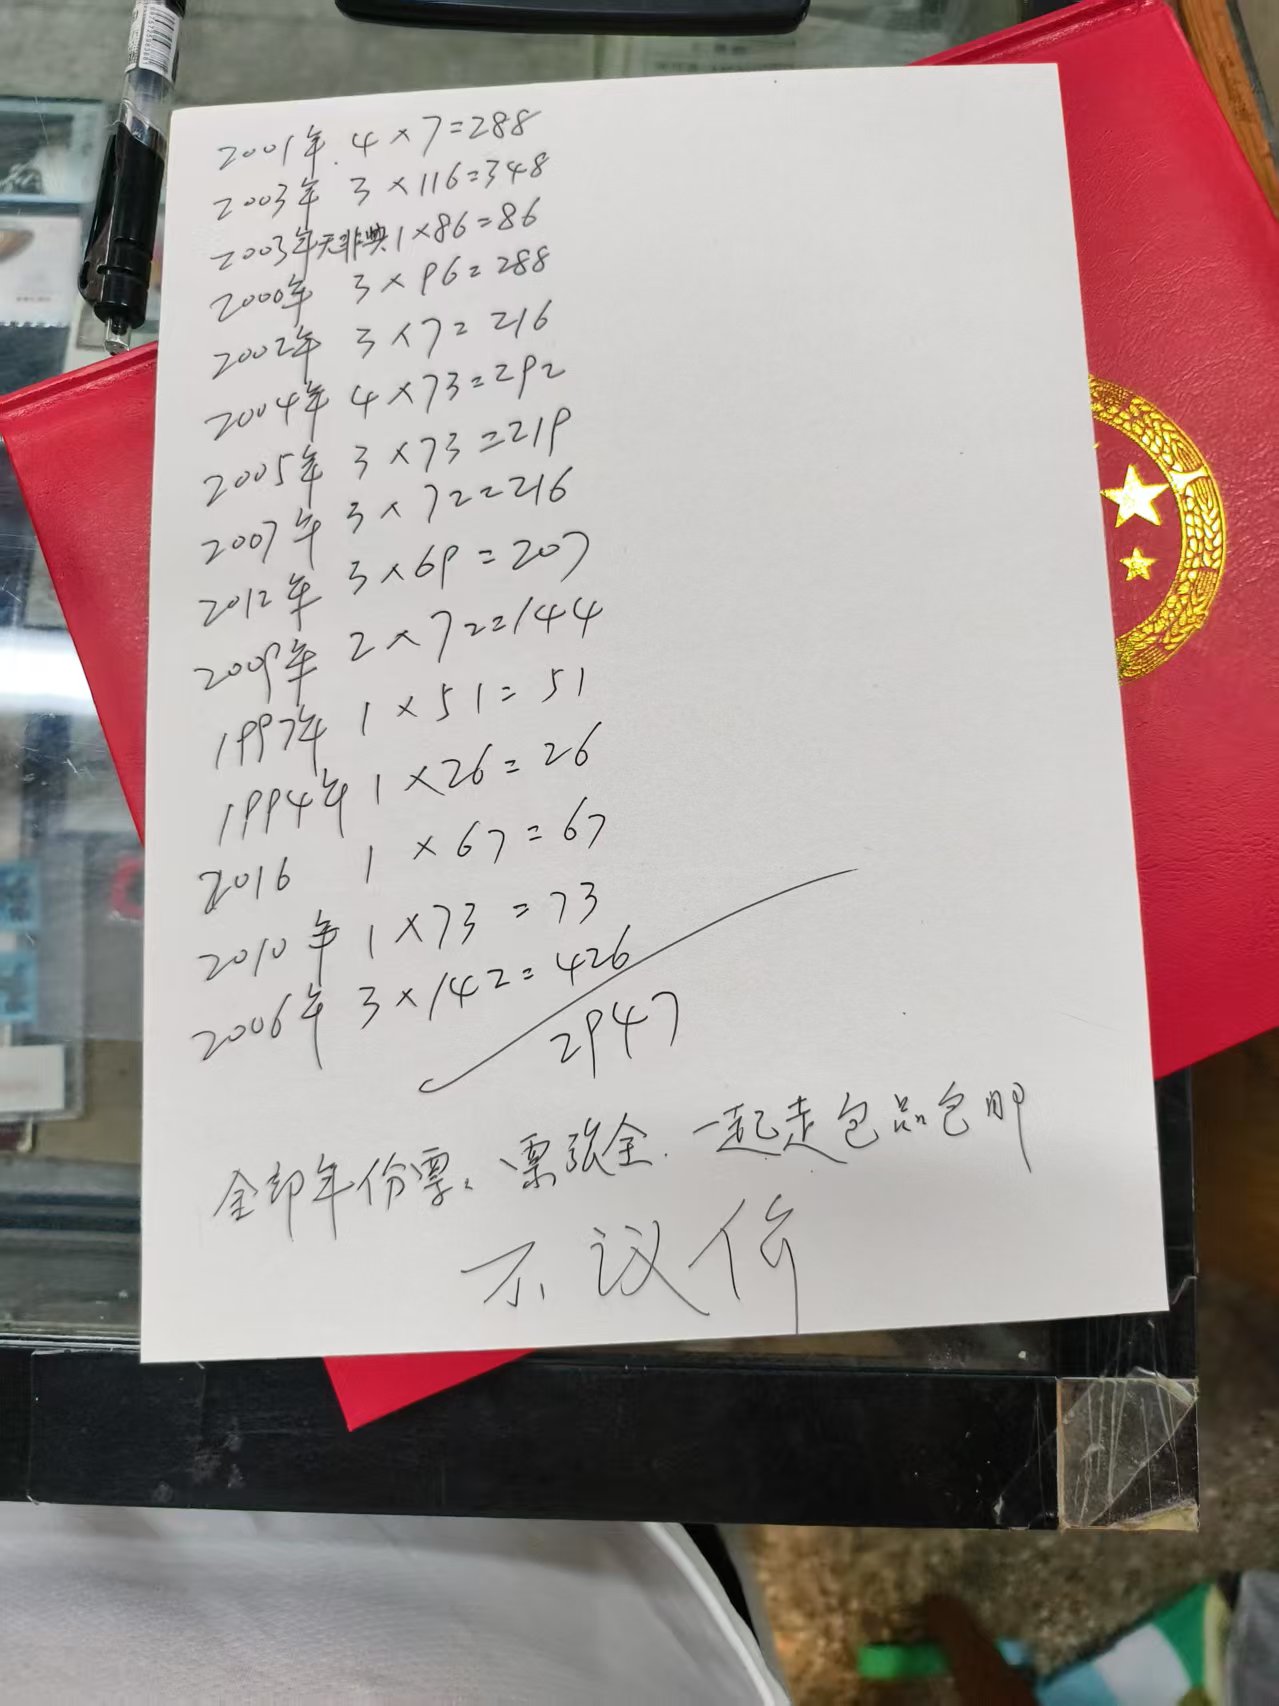 2001年.4×7=288
2003年 3×116=348
2003年无非典1×86=86
2000年 3×96=288
2002年 3×7=216
2004年 4×73=292
2005年 3×73=219
2007年 3×72=216
2012年 3×69=207
2009年 2×72=144
1997年 1×51=51
1994年 1×26=26
2016 1×67=67
2010年 1×73=73
2006年 3×142=426
2947
全部年份票、票张全.一起走包品包邮
不议价